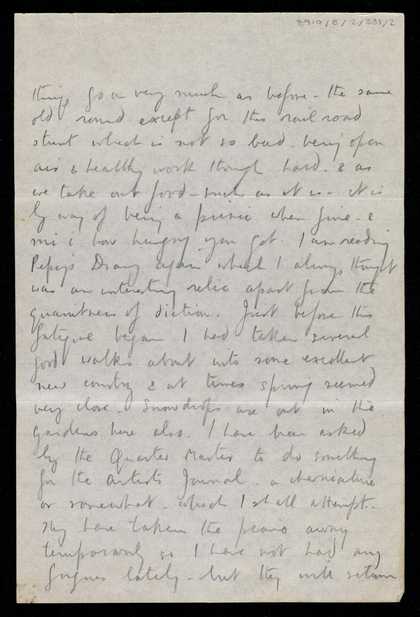 8910/8/2/233/2
things go on very much as before - the same
old round except for this rail road
stunt which is not so bad - being open
air & healthy work though hard. & as
we take out food - such as it is - it is
by way of being a picnic when fine - &
how hungry you get. I am reading
Pepys Diary again which I always thought
was an interesting relic apart from the
quaintness of diction. Just before this
fatigue began I had taken several
good walks about into some excellent
new country & at times spring seemed
very close. Snowdrops are out in the
gardens here also. I have been asked
by the Quarter Master to do something
for the Artists Journal - a charicature
or somewhat - which I shall attempt.
They have taken the piano away
temporarily so I have not had any
fugues lately - but they will return